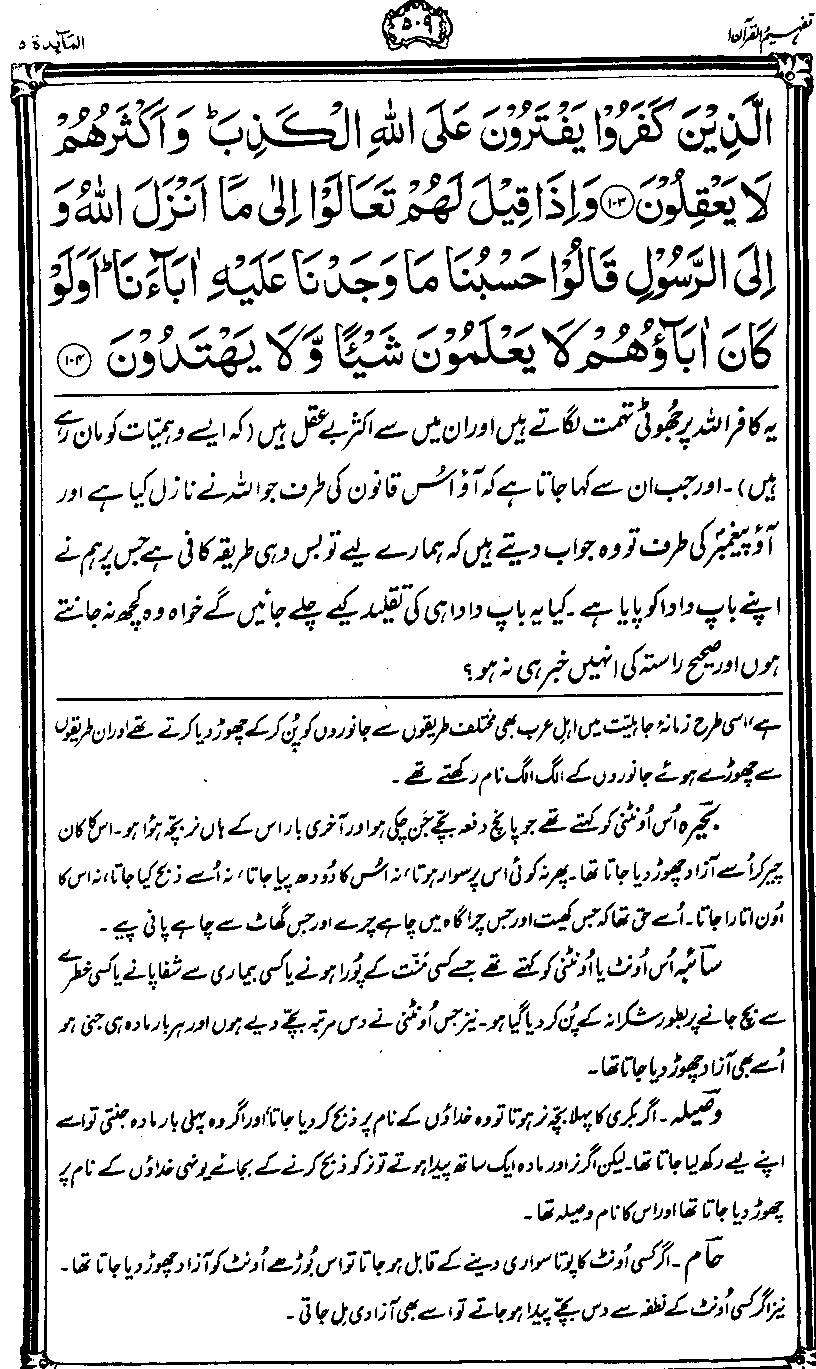 تفہیم القرآن ۱
۵۰۹
المآیدۃ ۵
الَّذِیْنَ كَفَرُوْا یَفْتَرُوْنَ عَلَى اللّٰهِ الْكَذِبَ ؕ وَ اَكْثَرُهُمْ
لَا یَعْقِلُوْنَ ﴿۱۰۳﴾ وَ اِذَا قِیْلَ لَهُمْ تَعَالَوْا اِلٰى مَاۤ اَنْزَلَ اللّٰهُ وَ
اِلَى الرَّسُوْلِ قَالُوْا حَسْبُنَا مَا وَجَدْنَا عَلَیْهِ اٰبَآءَنَا ؕ اَوَلَوْ
كَانَ اٰبَآؤُهُمْ لَا یَعْلَمُوْنَ شَیْـًٔا وَّ لَا یَهْتَدُوْنَ ﴿۱۰۴﴾
یہ کافر اللہ پر جُھوٹی تہمت لگاتے ہیں اور ان میں سے اکثر بے عقل ہیں (کہ ایسے وہمیّات کو مان رہے
ہیں)۔ اور جب ان سے کہا جاتا ہے کہ آؤ اُس قانون کی طرف جو اللہ نے نازل کیا ہے اور
آؤ پیغمبرؐ کی طرف تو وہ جواب دیتے ہیں کہ ہمارے لیے تو بس وہی طریقہ کافی ہے جس پر ہم نے
اپنے باپ دادا کو پایا ہے۔ کیا یہ باپ دادا ہی کی تقلید کیے چلے جائیں گے خواہ وہ کچھ نہ جانتے
ہوں اور صحیح راستہ کی انہیں خبر ہی نہ ہو؟
ہے، اسی طرح زمانۂ جاہلیّت میں اہلِ عرب بھی مختلف طریقوں سے جانوروں کو پُن کر کے چھوڑ دیا کرتے تھے اور ان طریقوں
سے چھوڑے ہوئے جانوروں کے الگ الگ نام رکھتے تھے۔
بَحِیرہ اُس اُونٹنی کو کہتے تھے جو پانچ دفعہ بچّے جَن چکی ہو اور آخری بار اس کے ہاں نر بچّہ ہؤا ہو۔ اس کا کان
چیر کر اُسے آزاد چھوڑ دیا جاتا تھا۔ پھر نہ کوئی اس پر سوار ہوتا، نہ اُس کا دُودھ پیا جاتا، نہ اُسے ذبح کیا جاتا، نہ اس کا
اُون اتارا جاتا۔ اُسے حق تھا کہ جس کھیت اور جس چراگاہ میں چاہے چرے اور جس گھاٹ سے چاہے پانی پیے۔
سائبہ اُس اُونٹ یا اُونٹنی کو کہتے تھے جسے کسی مَنّت کے پُورا ہونے یا کسی بیماری سے شفا پانے یا کسی خطرے
سے بچ جانے پر بطور شکرانہ کے پُن کر دیا گیا ہو۔ نیز جس اُونٹنی نے دس مرتبہ بچّے دیے ہوں اور ہر بار مادہ ہی جنی ہو
اُسے بھی آزاد چھوڑ دیا جاتا تھا۔
وصیلہ۔ اگر بکری کا پہلا بچّہ نر ہوتا تو وہ خداؤں کے نام پر ذبح کر دیا جاتا، اور اگر وہ پہلی بار مادہ جنتی تو اسے
اپنے لیے رکھ لیا جاتا تھا۔ لیکن اگر نر اور مادہ ایک ساتھ پیدا ہوتے تو نر کو ذبح کرنے کے بجائے یونہی خداؤں کے نام پر
چھوڑ دیا جاتا تھا اور اس کا نام وصیلہ تھا۔
حام۔ اگر کسی اُونٹ کا پوتا سواری دینے کے قابل ہو جاتا تو اس بُوڑھے اُونٹ کو آزاد چھوڑ دیا جاتا تھا۔
نیز اگر کسی اُونٹ کے نطفہ سے دس بچّے پیدا ہو جاتے تو اسے بھی آزادی مل جاتی۔